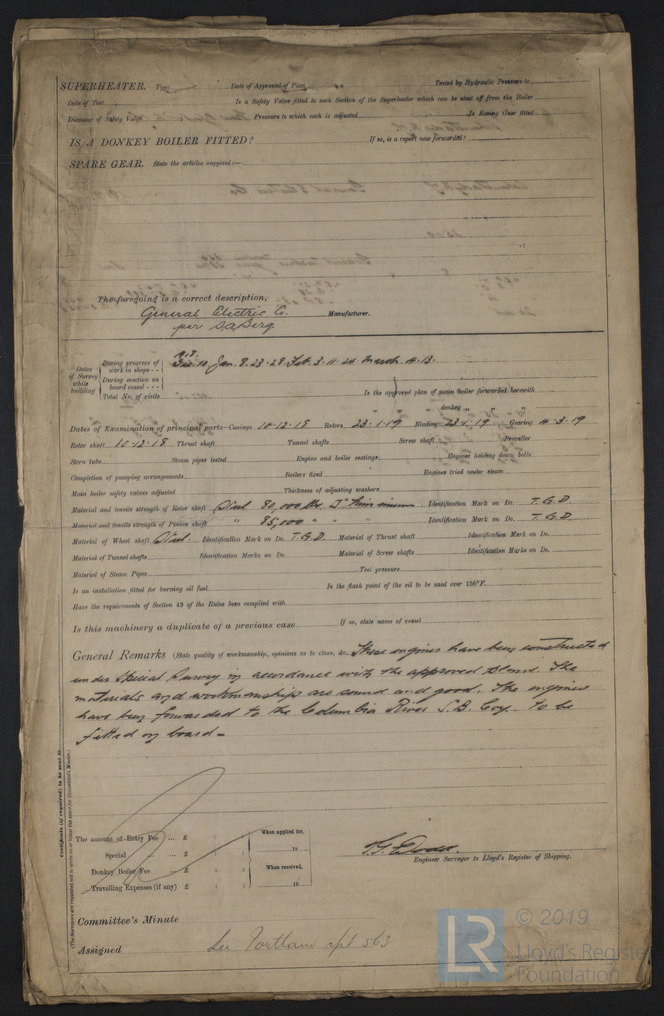 SUPERHEATER. Type Date of Approval of Plan Tested by Hydraulic Pressure to
Date of Test Is a Safety Valve fitted to each Section of the Superheater which can be shut off from the Boiler
Diameter of Safety Valve Pressure to which each is adjusted Is Easing Gear fitted
IS A DONKEY BOILER FITTED? If so, is a report now forwarded?
SPARE GEAR. State the articles supplied:—
The foregoing is a correct description,
General Electric Co. Manufacturer.
per
Dates of Survey while building
During progress of work in shops - - 1918 Dec 10 Jan. 8. 23. 28. Feb. 3. 11. 24. March 4. 13.
During erection on board vessel - - -
Total No. of visits Is the approved plan of main boiler forwarded herewith
" " " donkey " " "
Dates of Examination of principal parts—Casings 10.12.18 Rotors 23.1.19 Blading 23.1.19 Gearing 4.3.19
Rotor shaft 10.12.18 Thrust shaft Tunnel shafts Screw shaft Propeller
Stern tube Steam pipes tested Engine and boiler seatings Engines holding down bolts
Completion of pumping arrangements Boilers fixed Engines tried under steam
Main boiler safety valves adjusted Thickness of adjusting washers
Material and tensile strength of Rotor shaft Steel 80,000 lbs. □" minimum Identification Mark on Do. T.G.D.
Material and tensile strength of Pinion shaft " 85,000 " " " Identification Mark on Do. T.G.D.
Material of Wheel shaft Steel. Identification Mark on Do. T.G.D. Material of Thrust shaft Identification Mark on Do.
Material of Tunnel shafts Identification Marks on Do. Material of Screw shafts Identification Marks on Do.
Material of Steam Pipes Test pressure
Is an installation fitted for burning oil fuel Is the flash point of the oil to be used over 150°F.
Have the requirements of Section 49 of the Rules been complied with
Is this machinery a duplicate of a previous case If so, state name of vessel
General Remarks (State quality of workmanship, opinions as to class, &c. These engines have been constructed
under Special Survey in accordance with the approved plans. The
materials and workmanships are sound and good. The engines
have been forwarded to the Columbia River S.B. Coy. to be
fitted on board —
Certificate (if required) to be sent to
(The Surveyors are requested not to write on or below the space for Committee's Minute.)
The amount of Entry Fee ... £ : : When applied for,
Special ... £ : : 19
Donkey Boiler Fee ... £ : : When received,
Travelling Expenses (if any) £ : : 19
T. G. Dodd.
Engineer Surveyor to Lloyd's Register of Shipping.
Committee's Minute
Assigned See Portland rpt 563
LR © 2019
Lloyd's Register
Foundation